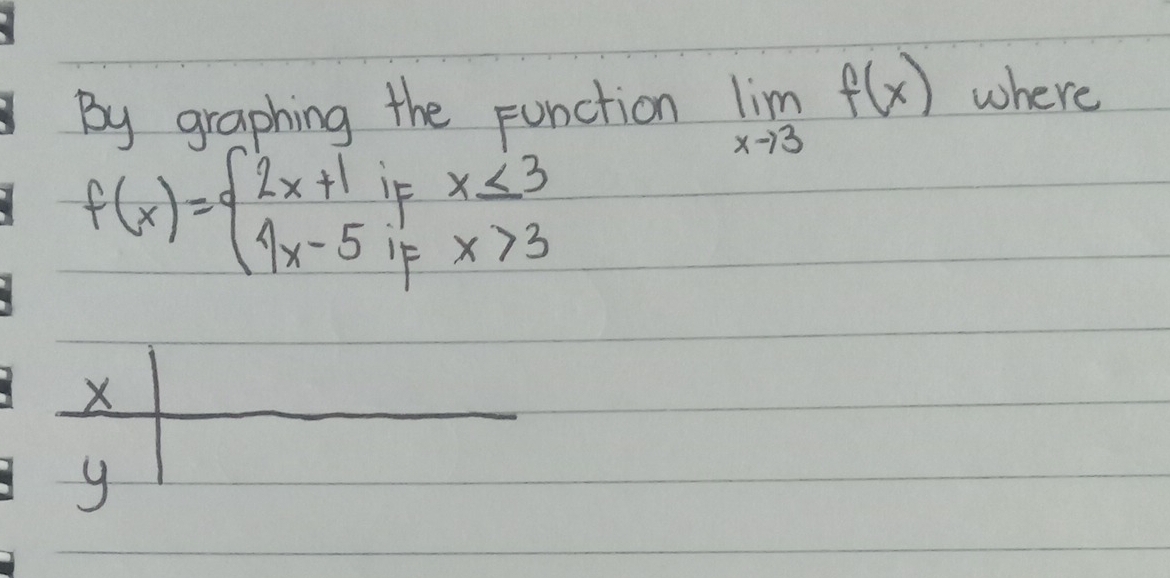 By graphing the function lim f(x) where
x→3
f(x) = { 2x+1 if x ≤ 3
x - 5 if x > 3
x
y